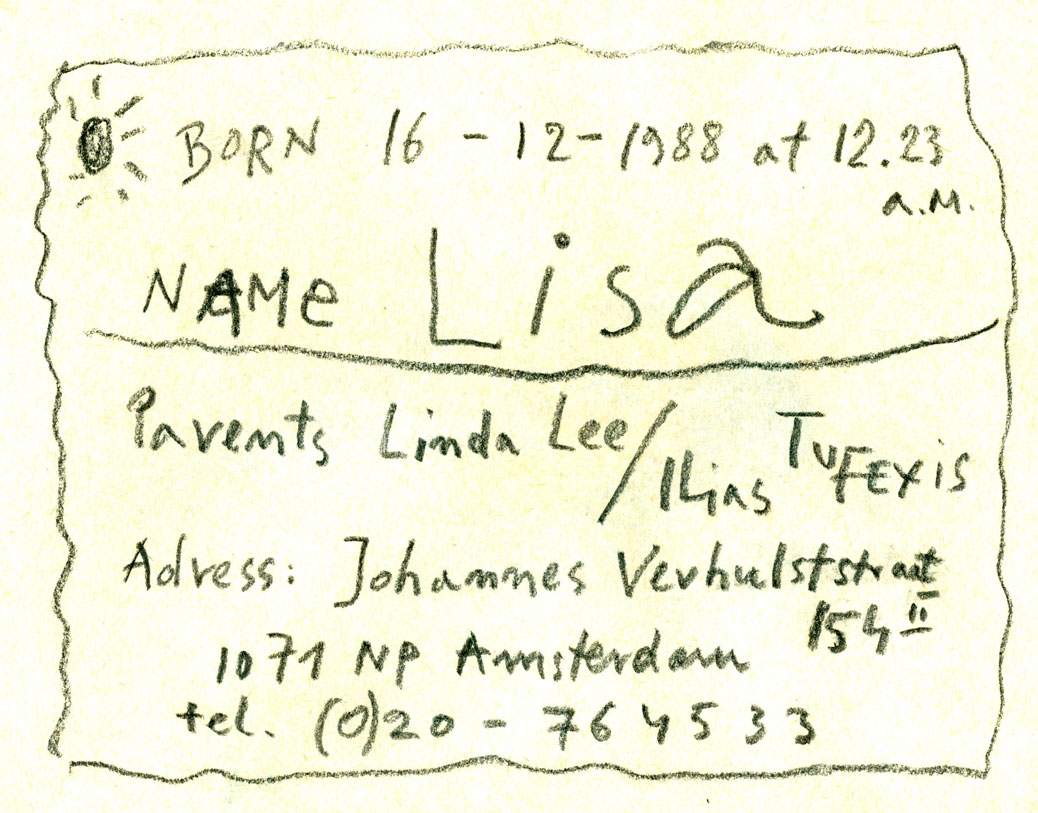 BORN 16 - 12 - 1988 at 12.23
a.M.
NAMe Lisa
Parents Linda Lee / Ilias TuFEXiS
Adress: Johannes Verhulststraat
154 II
1071 NP Amsterdam
tel. (0)20 - 764533